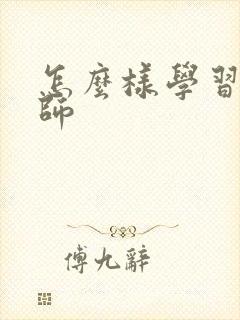 怎麼樣學習
師
傅九辭